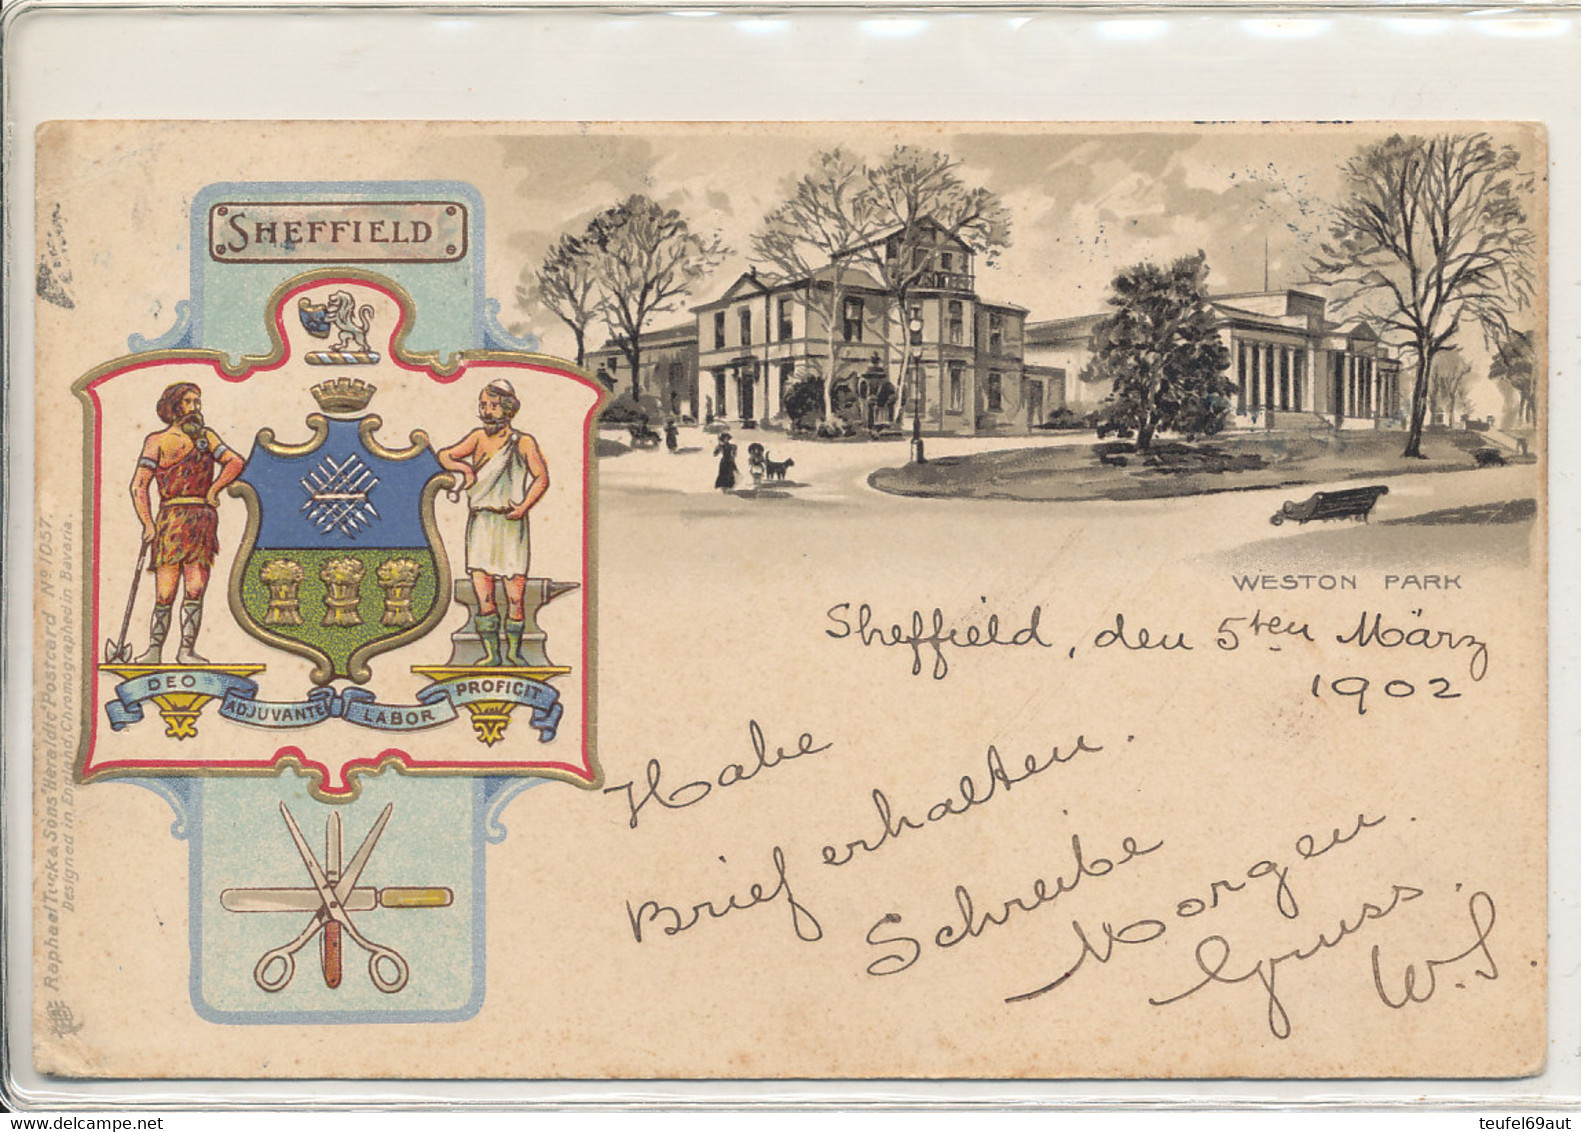 SHEFFIELD
DEO
ADJUVANTE
LABOR
PROFICIT
Raphael Tuck & Sons "Heraldic" Postcard Nº 1057.
Designed in England, Chromographed in Bavaria.
WESTON PARK
Sheffield, den 5ten März
1902
Habe
Brief erhalten.
Schreibe
Morgen.
Gruss.
W.S.
www.delcampe.net
teufel69aut